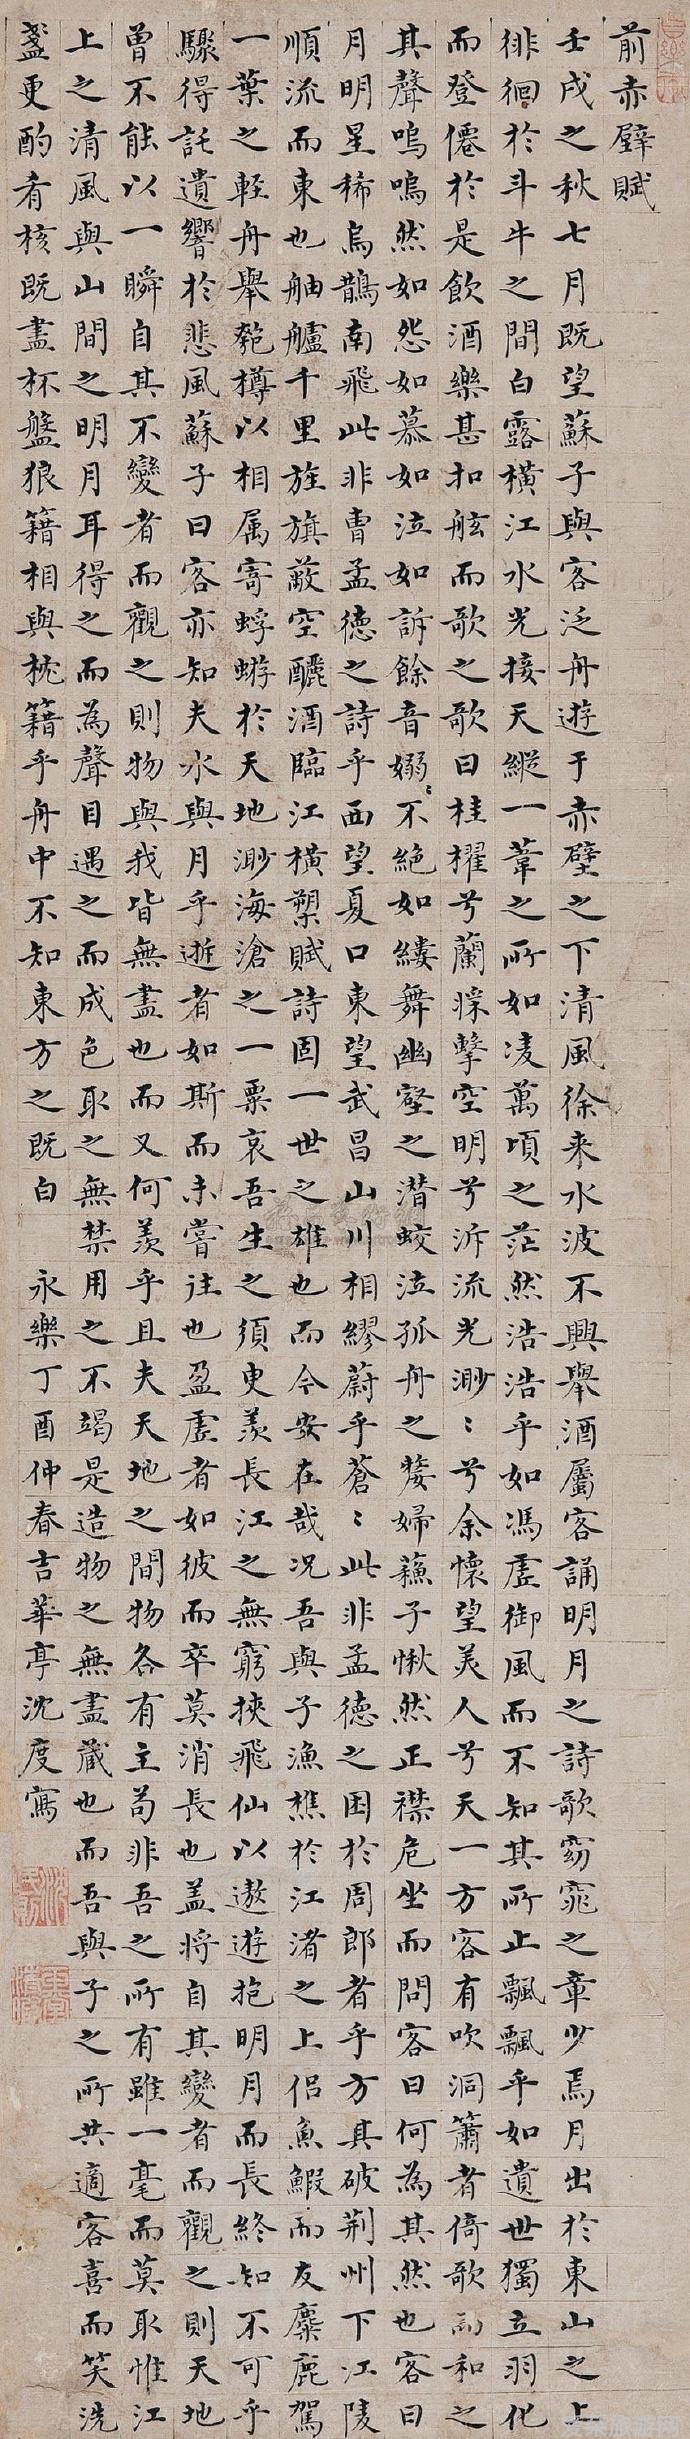 前赤壁賦
壬戌之秋七月既望蘇子與客泛舟遊于赤壁之下清風徐来水波不興舉酒屬客誦明月之詩歌窈窕之章少焉月出於東山之上
徘徊於斗牛之間白露橫江水光接天縱一葦之所如凌萬頃之茫然浩浩乎如馮虛御風而不知其所止飄飄乎如遺世獨立羽化
而登僊於是飲酒樂甚扣舷而歌之歌曰桂櫂兮蘭槳擊空明兮泝流光渺〻兮余懷望美人兮天一方客有吹洞簫者倚歌而和之
其聲嗚嗚然如怨如慕如泣如訴餘音嫋〻不絕如縷舞幽壑之潛蛟泣孤舟之嫠婦蘇子愀然正襟危坐而問客曰何為其然也客曰
月明星稀烏鵲南飛此非曹孟德之詩乎西望夏口東望武昌山川相繆蔚乎蒼〻此非孟德之困於周郎者乎方其破荆州下江陵
順流而東也舳艫千里旌旗蔽空釃酒臨江橫槊賦詩固一世之雄也而今安在哉况吾與子漁樵於江渚之上侶魚鰕而友麋鹿駕
一葉之輕舟舉匏樽以相属寄蜉蝣於天地渺海滄之一粟哀吾生之須臾羨長江之無窮挾飛仙以遨遊抱明月而長終知不可乎
驟得託遺響於悲風蘇子曰客亦知夫水與月乎逝者如斯而未嘗往也盈虛者如彼而卒莫消長也盖将自其變者而觀之則天地
曾不能以一瞬自其不變者而觀之則物與我皆無盡也而又何羡乎且夫天地之間物各有主苟非吾之所有雖一毫而莫取惟江
上之清風與山間之明月耳得之而為聲目遇之而成色取之無禁用之不竭是造物之無盡藏也而吾與子之所共適客喜而笑洗
盞更酌肴核既盡杯盤狼籍相與枕籍乎舟中不知東方之既白 永樂丁酉仲春吉華亭沈度寫